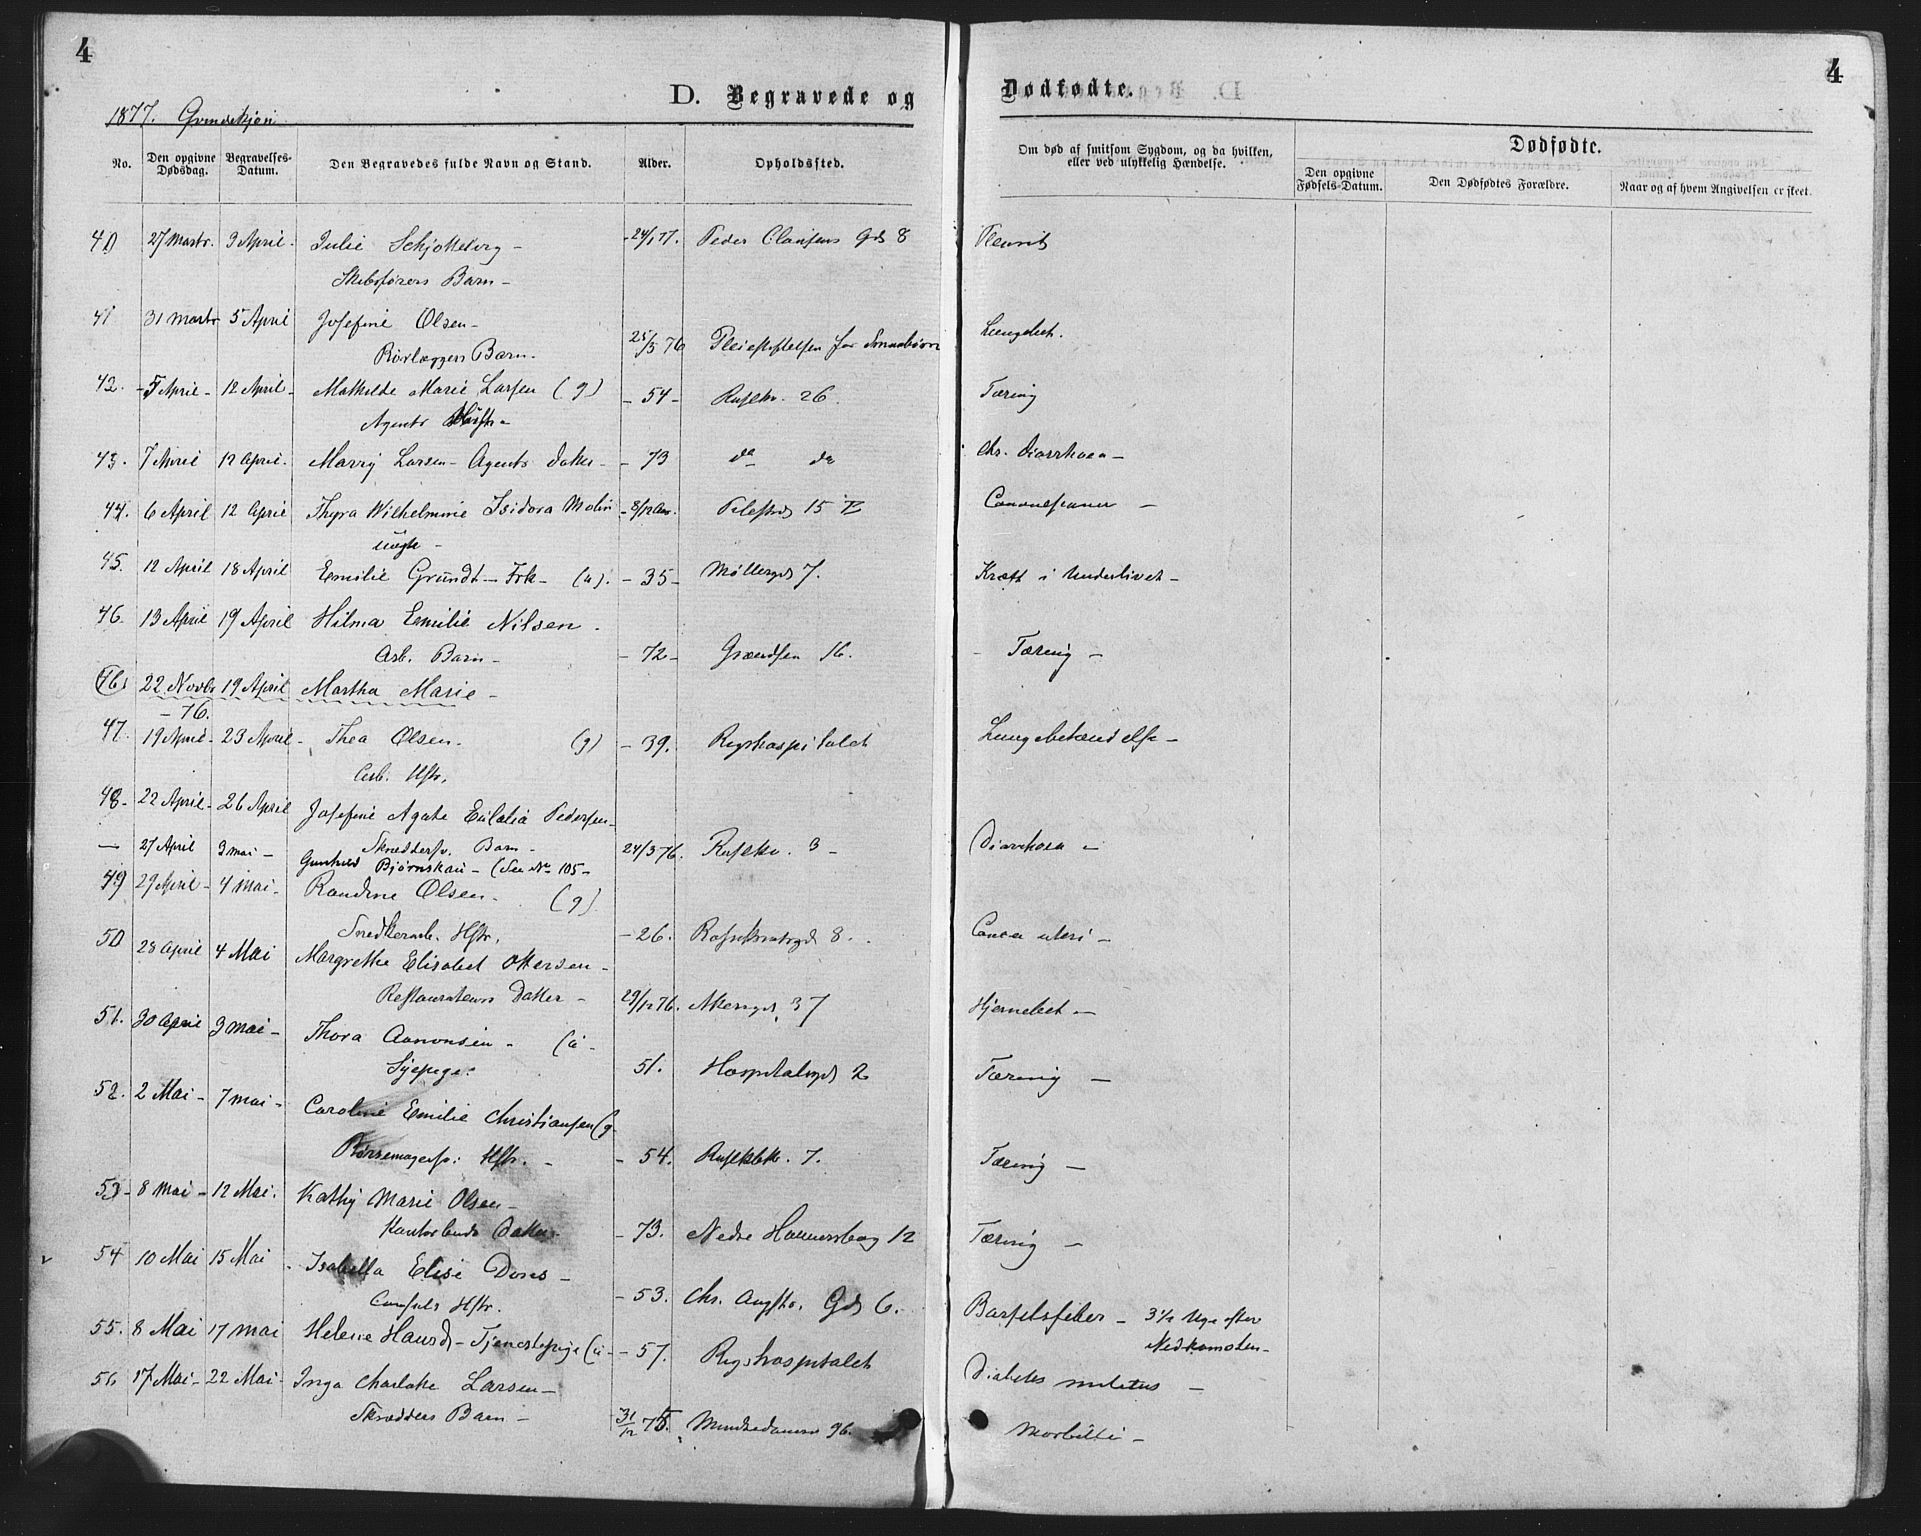 4
4
D. Begravede og Dødfødte.
1877.
No. Den opgivne Dødsdag. Begravelses-Datum. Den Begravedes fulde Navn og Stand. Alder. Opholdssted. Om død af smitsom Sygdom, og da hvilken, eller ved ulykkelig Hændelse. Dødfødte.
Den opgivne Fødsels-Datum. Den Dødfødtes Forældre. Naar og af hvem Angivelsen er skeet.
40 27 Martr. 3 April - Julie - 24/1 77. Peder Clausens Gd 8 Pleurit
Skibsførers Barn -
41 31 Martr 5 April Josefine Olsen -
Rørlæggers Barn. 25/3 76 Pleiestiftelsen for Smaabørn Lungebet.
42. - 5 April - 12 April - Mathilde Marie Larsen (g) - 54 - Rusløkv. 26. Tæring
Agents Hustr -
43. 7 April 12 April. Marry Larsen - Agents Datter - - 73 do do Chr. Diarrhoea -
44. 6 April 12 April Thyra Wilhelmine Isidora Molin - 8/12 Aar. Pilestrd 15
uægte -
45. 12 April 18 April Emilie Grundt - Frk - (u). - 35 - Møllergd 7. Kræft i Underlivet -
46. 13 April 19 April Hilma Emilie Nilsen -
Arb. Barn - - 72 - Grændsen 16. - Tæring -
(76) 22 Novbr 19 April Martha Marie -
- 76.
47. 19 April - 23 April - Thea Olsen. (g) - 39. Rigshospitalet Lungebetændelse -
Arb. Hstr.
48 - 22 April - 26 April Josefine Agate Eulalia Pedersen -
Skræddersv. Barn - 24/3 76. Rusløkv. 3 - Diarrhoea -
— 27 April 3 mai - Gunhild Bjørnskau - (See No 105 -
49 29 April - 4 mai - Randine Olsen - (g)
Snedkerarb. Hstr. - 26. 8. Cancer uteri -
50 28 April 4 Mai Margrethe Elisabet Ottersen -
Restaurateurs Datter - 29/12 76. Akersgd. 37 Hjernebet -
51. 30 April 3 mai - Thora Aamonsen - (u -
Sypige. 51. Hospitalsgd 2 Tæring -
52. 2 Mai - 7 mai - Caroline Emilie Christiansen (g -
Børstemagersv. Hstr. - - 54. Rusløkbk. 7. Tæring -
53 - 8 mai - 12 Mai. Kathy Marie Olsen -
Kontorbuds Datter - - 73. Nedre 12 Tæring -
54 10 Mai 15 Mai - Isabella Elise Dons -
Consuls Hstr. - 53. Chr. Augsts. Gd 6. Barselsfeber - 3 1/2 Uge efter
Nedkomsten -
55. 8 Mai 17 mai Helene - Tjenestepige (u - - 57. Rigshospitalet Diabetes melitus -
56 17 Mai - 22 Mai - Inga Charlotte Larsen -
Skrædders Barn - 31/12 75. Munkedamsv 96. Morbilli -